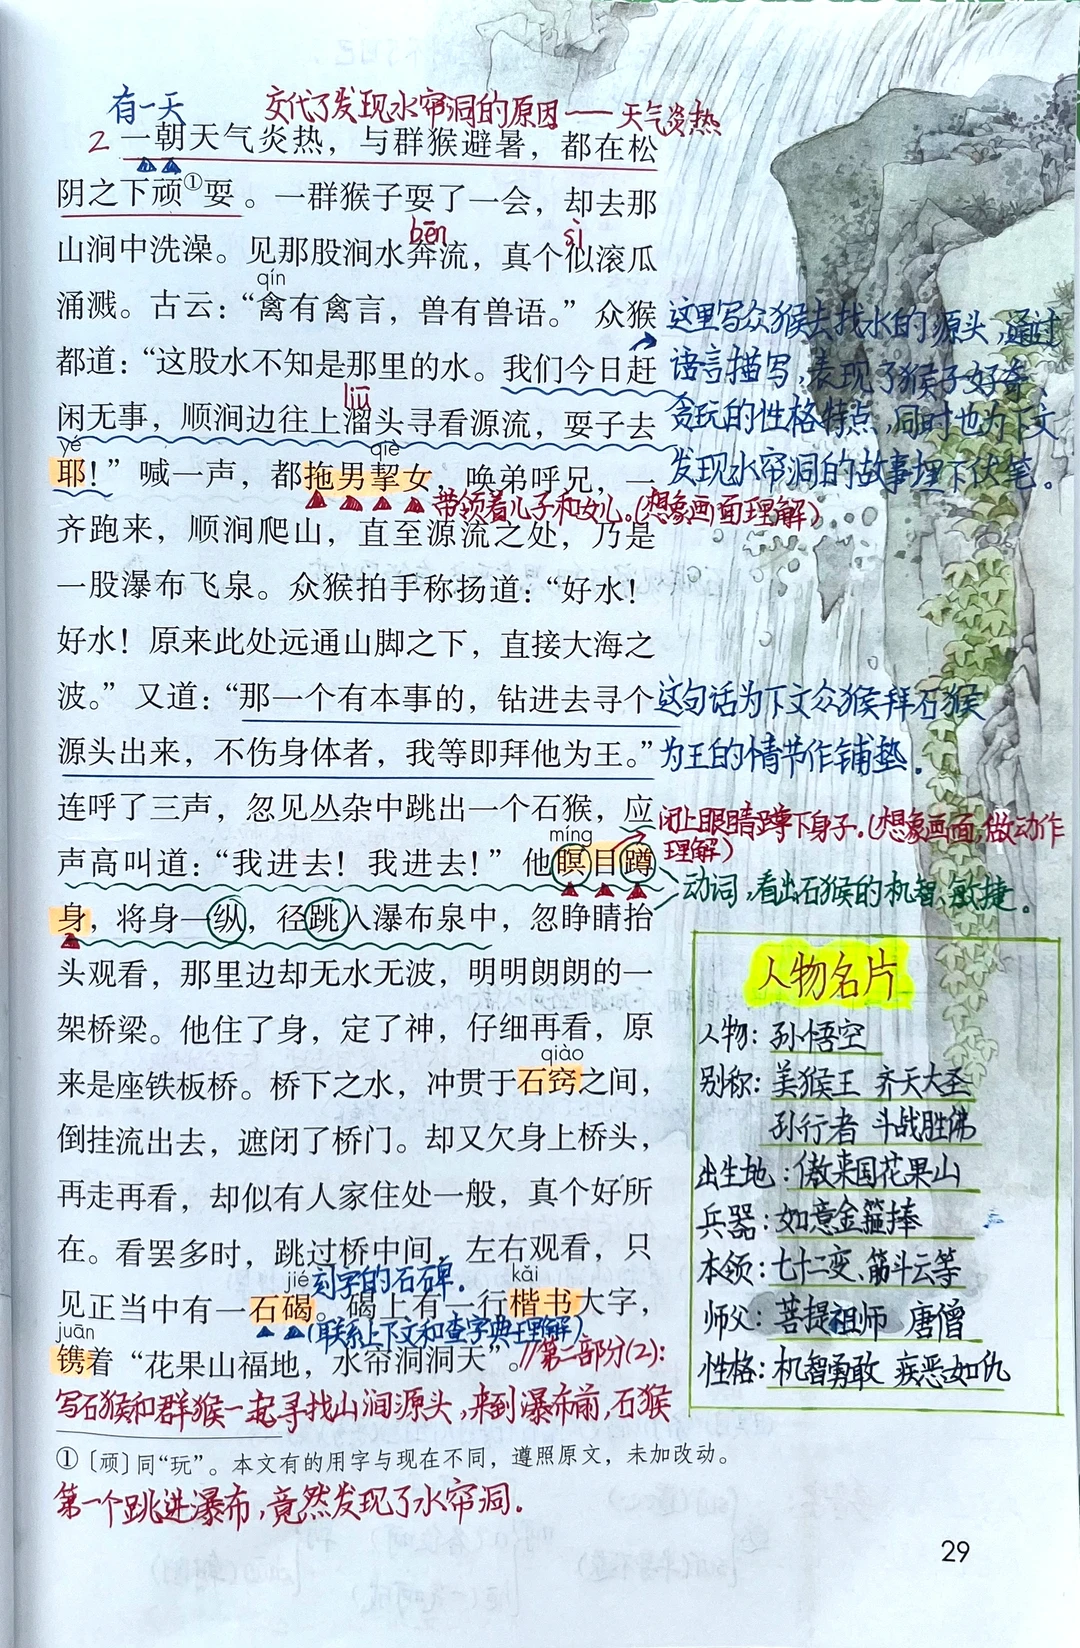 有一天 交代了发现水帘洞的原因——天气炎热
2 一朝天气炎热，与群猴避暑，都在松
阴之下顽①耍。一群猴子耍了一会，却去那
bēn sì
山涧中洗澡。见那股涧水奔流，真个似滚瓜
qín
涌溅。古云：“禽有禽言，兽有兽语。”众猴
都道：“这股水不知是那里的水。我们今日赶
liū
闲无事，顺涧边往上溜头寻看源流，耍子去
yé qiè
耶！”喊一声，都拖男挈女，唤弟呼兄，一
带领着儿子和女儿。（想象画面理解）
齐跑来，顺涧爬山，直至源流之处，乃是
一股瀑布飞泉。众猴拍手称扬道：“好水！
好水！原来此处远通山脚之下，直接大海之
波。”又道：“那一个有本事的，钻进去寻个
源头出来，不伤身体者，我等即拜他为王。”
连呼了三声，忽见丛杂中跳出一个石猴，应
míng
声高叫道：“我进去！我进去！”他瞑目蹲
身，将身一纵，径跳入瀑布泉中，忽睁睛抬
头观看，那里边却无水无波，明明朗朗的一
架桥梁。他住了身，定了神，仔细再看，原
qiào
来是座铁板桥。桥下之水，冲贯于石窍之间，
倒挂流出去，遮闭了桥门。却又欠身上桥头，
再走再看，却似有人家住处一般，真个好所
在。看罢多时，跳过桥中间，左右观看，只
jié 刻字的石碑. kǎi
见正当中有一石碣。碣上有一行楷书大字，
juān （联系上下文和查字典理解）
镌着“花果山福地，水帘洞洞天”。//第二部分(2)：
写石猴和群猴一起寻找山涧源头，来到瀑布前，石猴
①〔顽〕同“玩”。本文有的用字与现在不同，遵照原文，未加改动。
第一个跳进瀑布，竟然发现了水帘洞.
这里写众猴去找水的源头，通过
语言描写，表现了猴子好奇、
贪玩的性格特点，同时也为下文
发现水帘洞的故事埋下伏笔。
这句话为下文众猴拜石猴
为王的情节作铺垫.
闭上眼睛蹲下身子.（想象画面，做动作
理解）
动词，看出石猴的机智、敏捷.
人物名片
人物：孙悟空
别称：美猴王 齐天大圣
孙行者 斗战胜佛
出生地：傲来国花果山
兵器：如意金箍捧
本领：七十二变、筋斗云等
师父：菩提祖师 唐僧
性格：机智勇敢 疾恶如仇
29